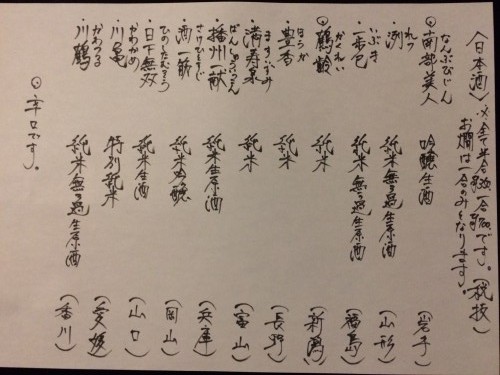 〈日本酒〉・※全て半合 一合700です。(税抜)
お燗は一合のみとなります。
なんぶびじん
◎南部美人 吟醸生酒 (岩手)
れつ
・洌 純米無ろ過生原酒 (山形)
いぶき
・一歩己 純米無ろ過生原酒 (福島)
かくれい
◎鶴齢 純米 (新潟)
ほうか
・豊香 純米 (長野)
ますいずみ
・満寿泉 純米 (富山)
ばんしゅういっこん
・播州一献 純米生原酒 (兵庫)
さけひとすじ
・酒一筋 純米吟醸 (岡山)
ひのしたむそう
・日下無双 純米生酒 (山口)
かわかめ
・川亀 特別純米 (愛媛)
かわつる
・川鶴 純米無ろ過生原酒 (香川)
◎辛口です。